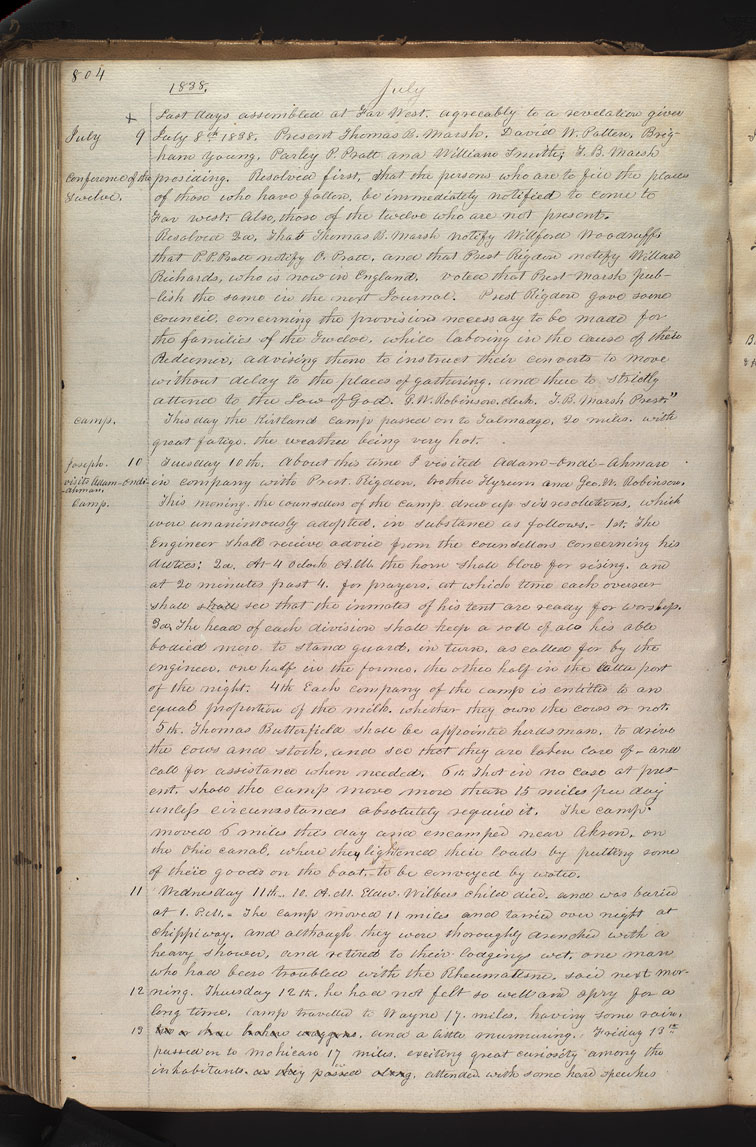 804
1838. July
Last days assembled at Far West, agreeably to a revelation given
July 9 July 8th 1838. Present Thomas B. Marsh, David W. Patten, Brig-
ham Young, Parley P. Pratt and William Smith; T. B. Marsh
Conference of the Twelve. presiding. Resolved first, that the persons who are to fill the places
of those who have fallen, be immediately notified to come to
Far West. Also, those of the twelve who are not present.
Resolved 2d. That Thomas B. Marsh notify Willford Woodruff,
that P. P. Pratt notify O. Pratt, and that Prest Rigdon notify Willard
Richards, who is now in England. Voted that Prest Marsh pub-
-lish the same in the next Journal. Prest Rigdon gave some
council concerning the provisions necessary to be made for
the families of the Twelve, while laboring in the cause of their
Redeemer, advising them to instruct their converts to move
without delay to the places of gathering, and there to strictly
attend to the Law of God. G. W. Robinson, clerk. T. B. Marsh Prest."
Camp. This day the Kirtland Camp passed on to Talmadge, 20 miles, with
great fatige, the weather being very hot.
Joseph 10 Tuesday 10th. About this time I visited Adam-ondi-Ahman
visits Adam-ondi-Ahman. in company with Prest. Rigdon, brother Hyrum and Geo. W. Robinson.
Camp. This morning the counsellors of the camp drew up six resolutions, which
were unanimously adopted, in substance as follows.- 1st. The
Engineer shall recieve advice from the counsellors concerning his
duties; 2d. At 4 O'clock A.M. the horn shall blow for rising, and
at 20 minutes past 4, for prayers, at which time each overseer
shall shall see that the inmates of his tent are ready for worship.
3d. The head of each division shall keep a roll of all his able
bodied men to stand guard, in turn, as called for by the
engineer, one half in the former, the other half in the latter part
of the night. 4th Each company of the camp is entitled to an
equal proportion of the milk, whether they own the cows or not.
5th. Thomas Butterfield shall be appointed herdsman, to drive
the cows and stock, and see that they are taken care of- and
call for assistance when needed. 6th That in no case at pres-
ent, shall the camp move more than 15 miles per day
unless circumstances absolutely require it. The camp
moved 6 miles this day and encamped near Akron, on
the Ohio canal, where they lightened their loads by putting some
of their goods on the boat, to be conveyed by water.
11 Wednesday 11th.. 10. A.M. Elder Wilbers child died, and was buried
at 1. P.M.- The camp moved 11 miles and tarried over night at
Chippiway, and although they were thoroughly drenched with a
heavy shower, and retired to their lodgings wet, one man
who had been troubled with the Rheumatism, said next mor-
12 ning, Thursday 12th, he had not felt so well and spry for a
long time. Camp travelled to Wayne 17 miles, having some rain,
13 two or three broken waggons, and a little murmuring. Friday 13th
passed on to Mohican 17 miles, exciting great curiosity among the
inhabitants as they passed along, attended with some hard speeches